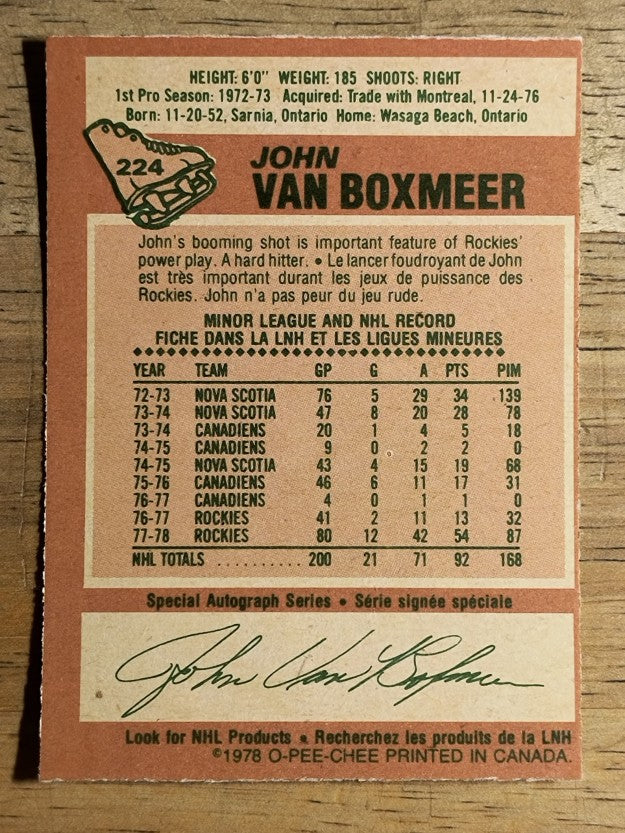 HEIGHT: 6'0" WEIGHT: 185 SHOOTS: RIGHT
1st Pro Season: 1972-73 Acquired: Trade with Montreal, 11-24-76
Born: 11-20-52, Sarnia, Ontario Home: Wasaga Beach, Ontario
224
JOHN
VAN BOXMEER
John's booming shot is important feature of Rockies'
power play. A hard hitter. • Le lancer foudroyant de John
est très important durant les jeux de puissance des
Rockies. John n'a pas peur du jeu rude.
MINOR LEAGUE AND NHL RECORD
FICHE DANS LA LNH ET LES LIGUES MINEURES
YEAR TEAM GP G A PTS PIM
72-73 NOVA SCOTIA 76 5 29 34 139
73-74 NOVA SCOTIA 47 8 20 28 78
73-74 CANADIENS 20 1 4 5 18
74-75 CANADIENS 9 0 2 2 0
74-75 NOVA SCOTIA 43 4 15 19 68
75-76 CANADIENS 46 6 11 17 31
76-77 CANADIENS 4 0 1 1 0
76-77 ROCKIES 41 2 11 13 32
77-78 ROCKIES 80 12 42 54 87
NHL TOTALS .......... 200 21 71 92 168
Special Autograph Series • Série signée spéciale
John Van Boxmeer
Look for NHL Products • Recherchez les produits de la LNH
©1978 O-PEE-CHEE PRINTED IN CANADA.